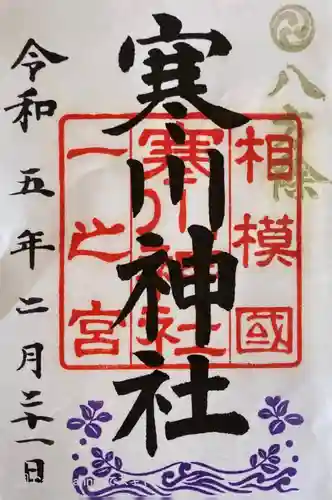 八方除
寒川神社
相模國
寒川神社
一之宮
令和五年二月二十一日